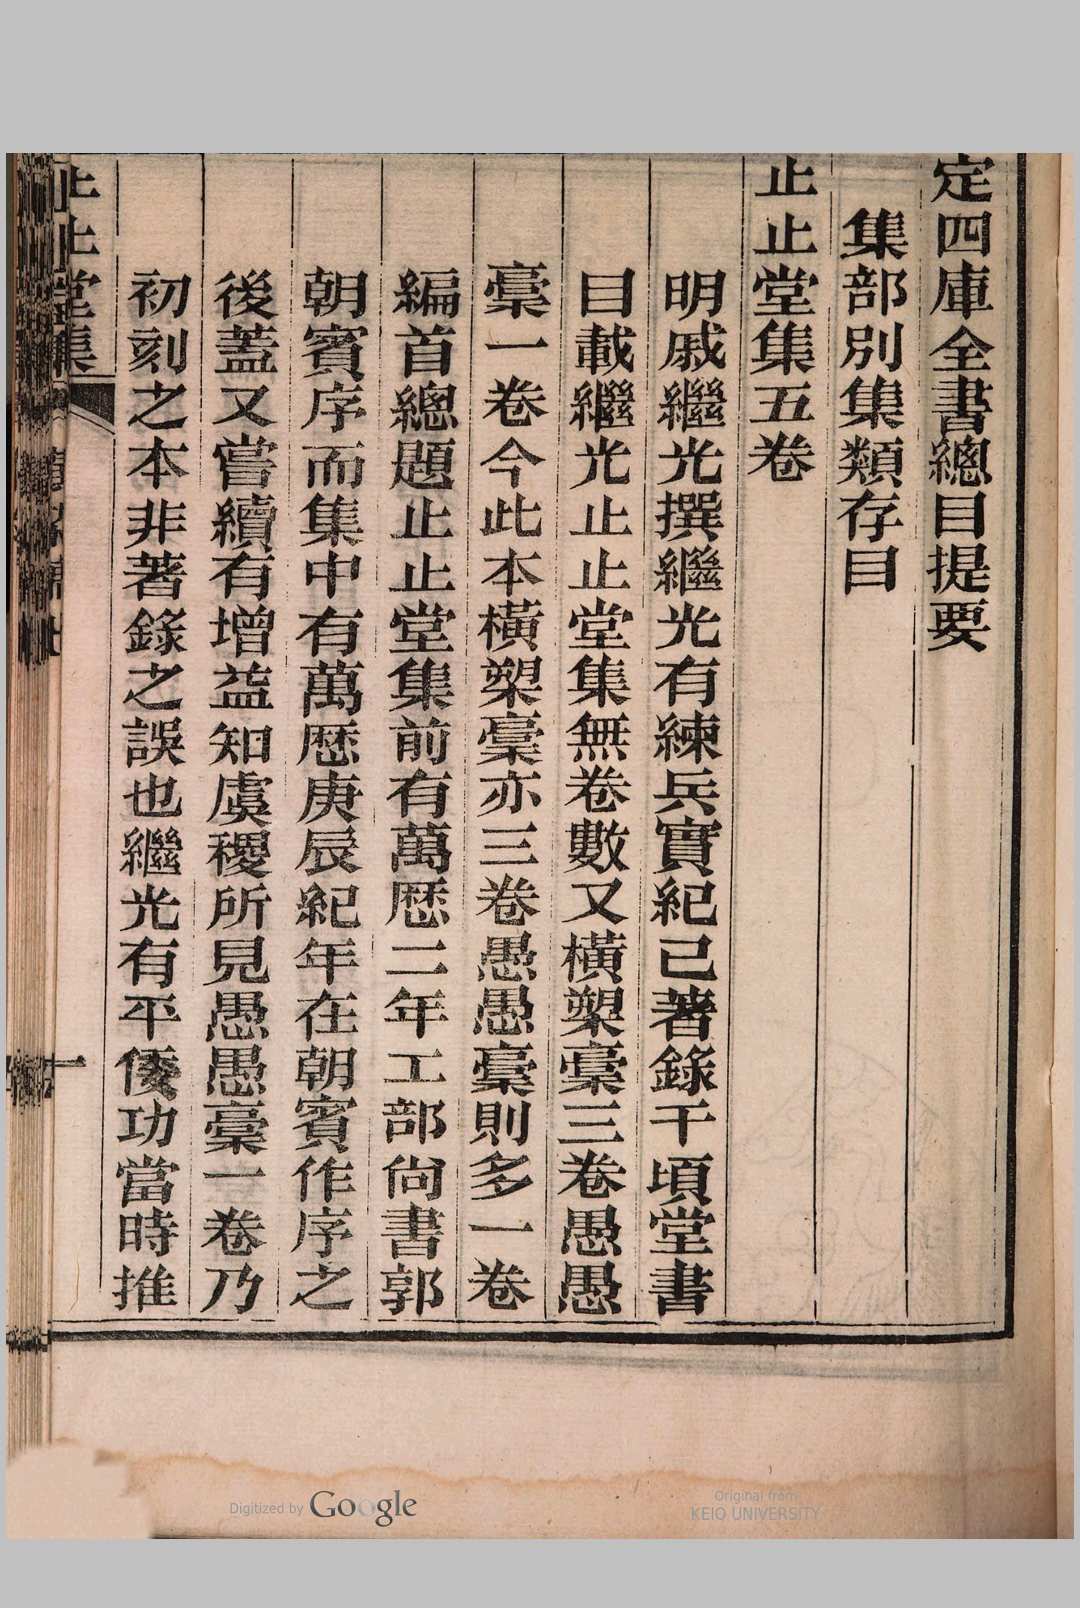 定四庫全書總目提要
集部別集類存目
止止堂集五卷
明戚繼光撰繼光有練兵實紀已著錄千頃堂書
目載繼光止止堂集無卷數又橫槊稾三卷愚愚
稾一卷今此本橫槊稾亦三卷愚愚稾則多一卷
編首總題止止堂集前有萬歷二年工部尙書郭
朝賓序而集中有萬歷庚辰紀年在朝賓作序之
後蓋又嘗續有增益知虞稷所見愚愚稾一卷乃
初刻之本非著錄之誤也繼光有平倭功當時推
止止堂集
一
Digitized by Google
Original from
KEIO UNIVERSITY